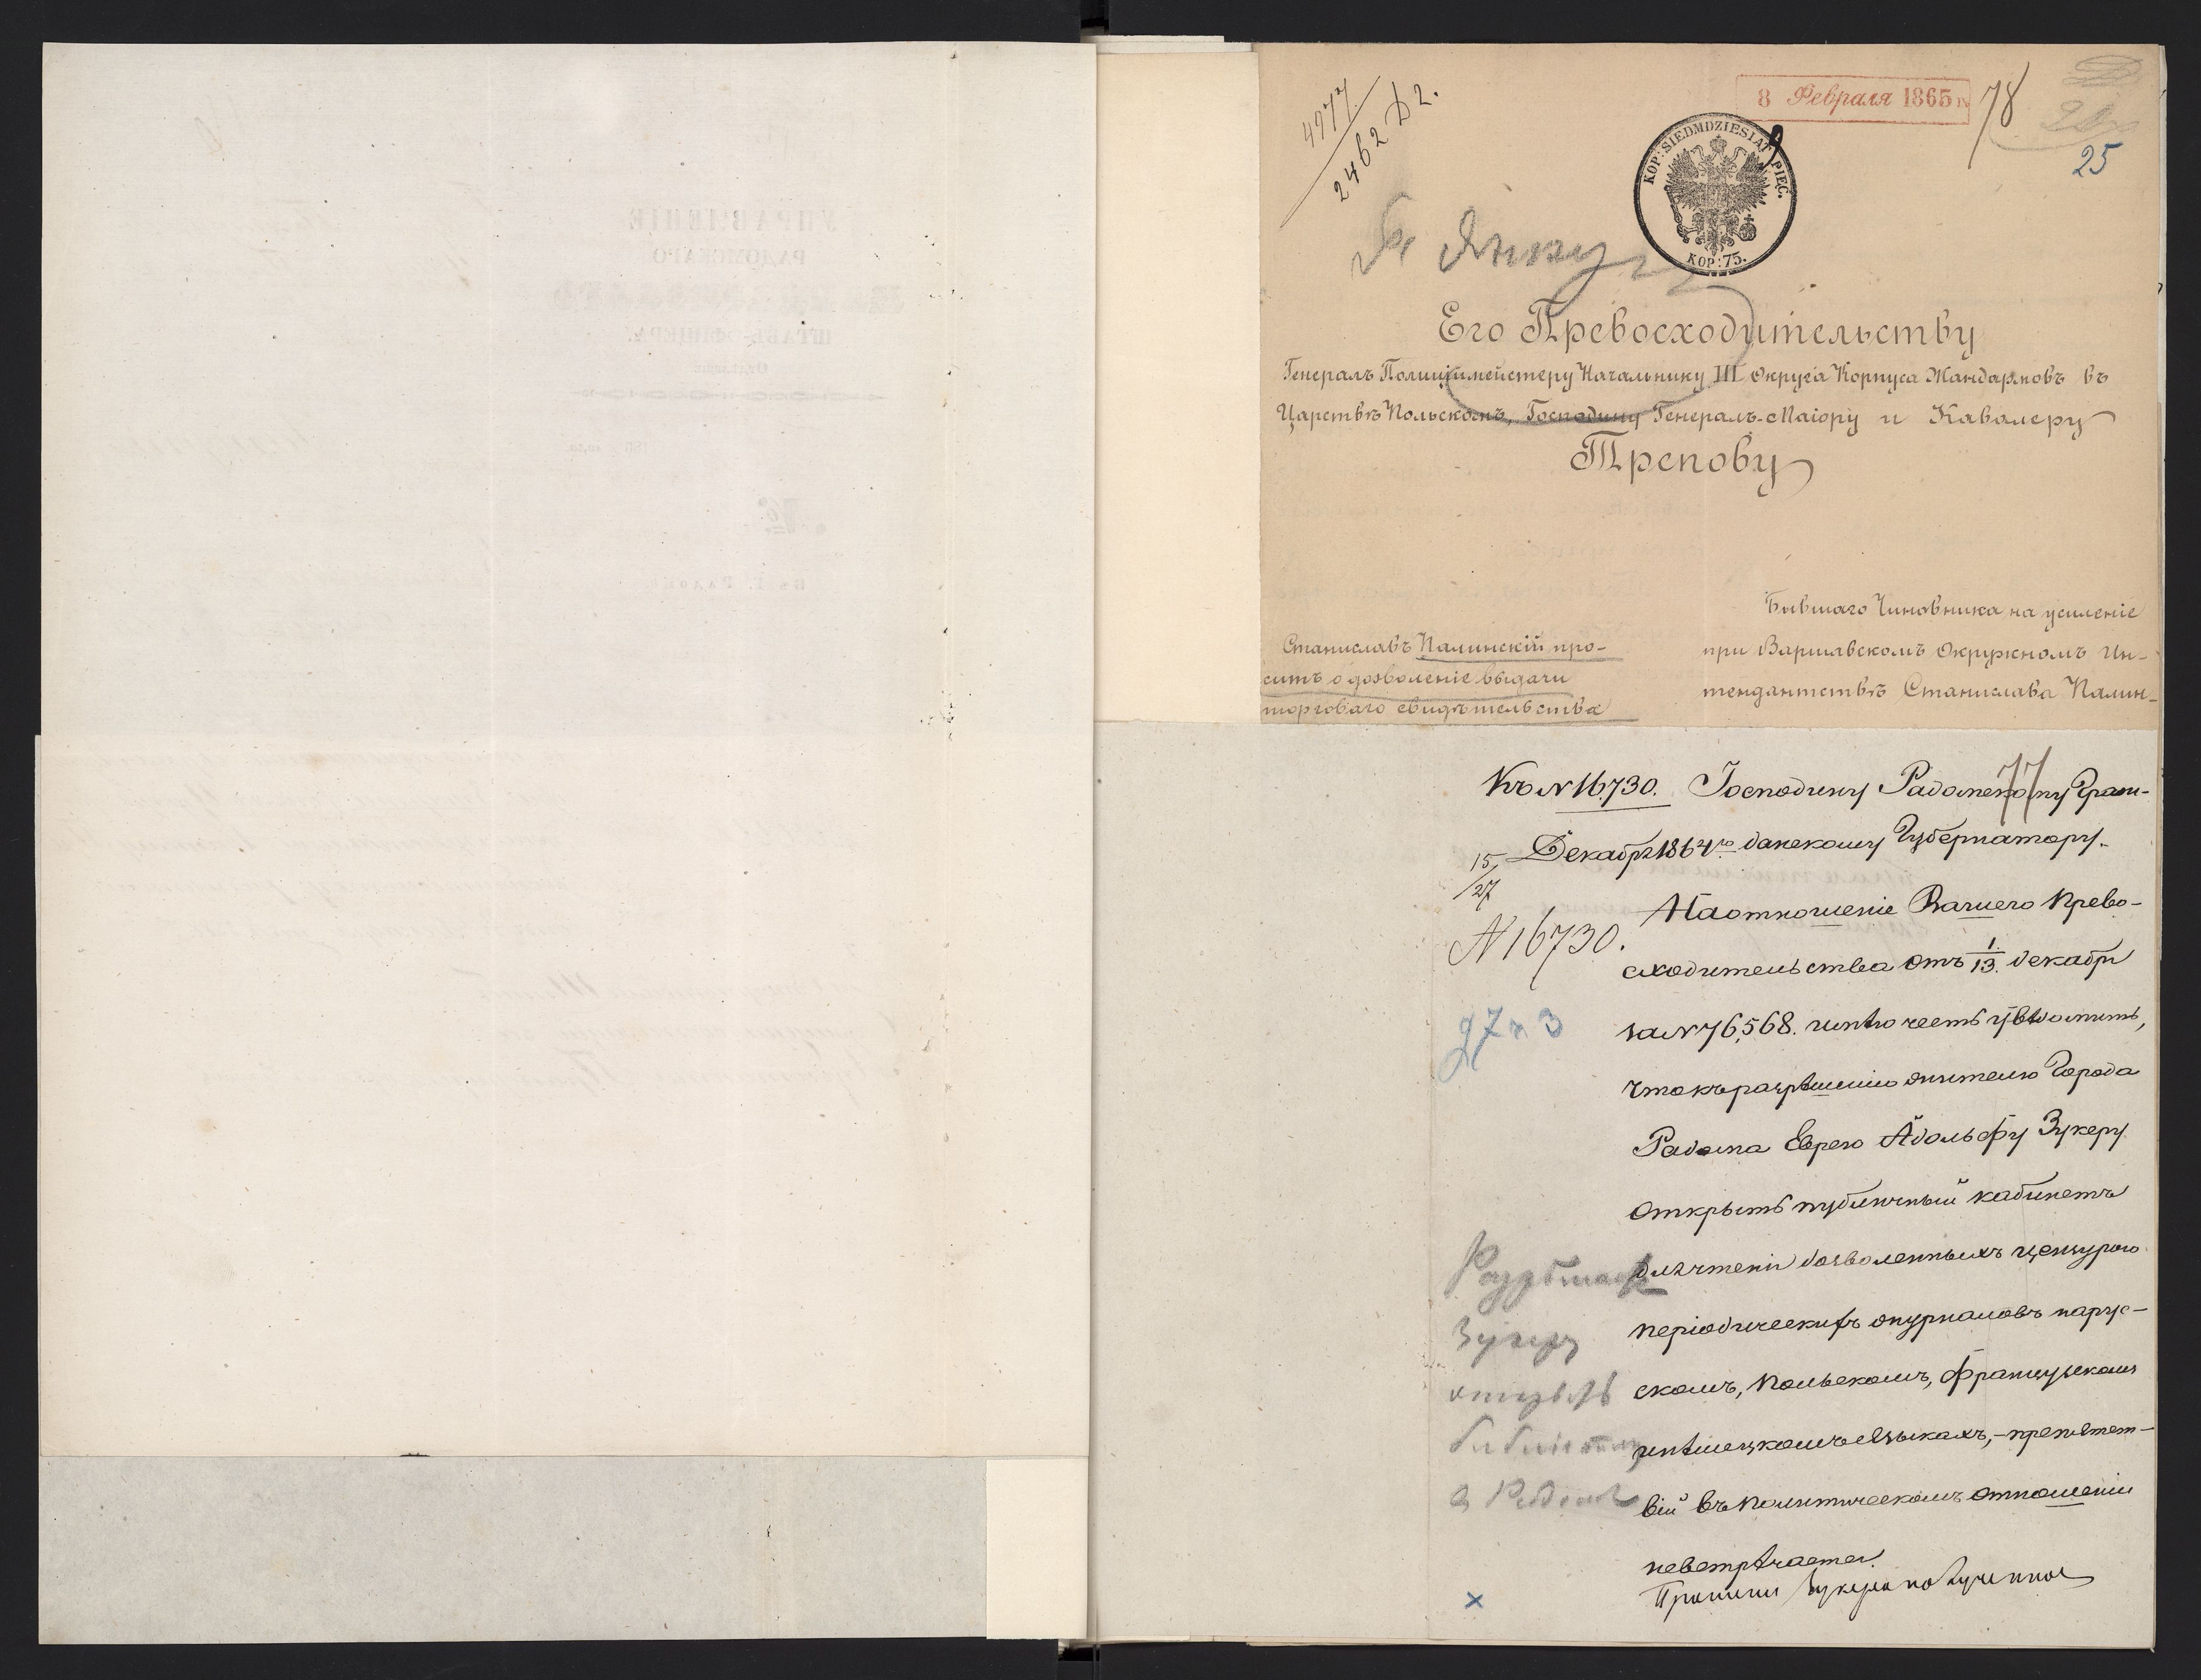 4977
2462 Д 2.
8 Февраля 1865
78
25
KOP: SIEDMDZIESIĄT PIĘĆ.
KOP: 75.
Его Превосходительству
Генералъ Полиціймейстеру Начальнику III Округа Корпуса Жандармовъ въ
Царствѣ Польскомъ, Господину Генералъ-Маіору и Кавалеру
Трепову
Бывшаго Чиновника на усиленіе
при Варшавскомъ Окружномъ Ин-
тендантствѣ Станислава Калин-
Станиславъ Калинскій про-
ситъ о дозволеніе выдачи
торговаго свидѣтельства
77
Къ № 16730. Господину Радомскому Граж-
15/27 Декабря 1864 го данскому Губернатору.
№ 16730.
На отношеніе Вашего Прево-
сходительства отъ 1/13. декабря
за № 76,568. имѣю честь увѣдомить,
что къ разрѣшенію жителю Города
Радома Еврею Адольфу Зукеру
открыть публичный кабинетъ
для чтенія дозволенныхъ цензурою
періодическихъ журналовъ на рус-
скомъ, польскомъ, французскомъ
и нѣмецкомъ языкахъ, - препятст-
вій въ политическомъ отношеніи
не встрѣчается.
Зукеру
открыть
библіотеку
в Радомѣ
УПРАВЛЕНІЕ
РАДОМСКАГО
ШТАБЪ-ОФИЦЕРА
№
Въ г. Радомѣ